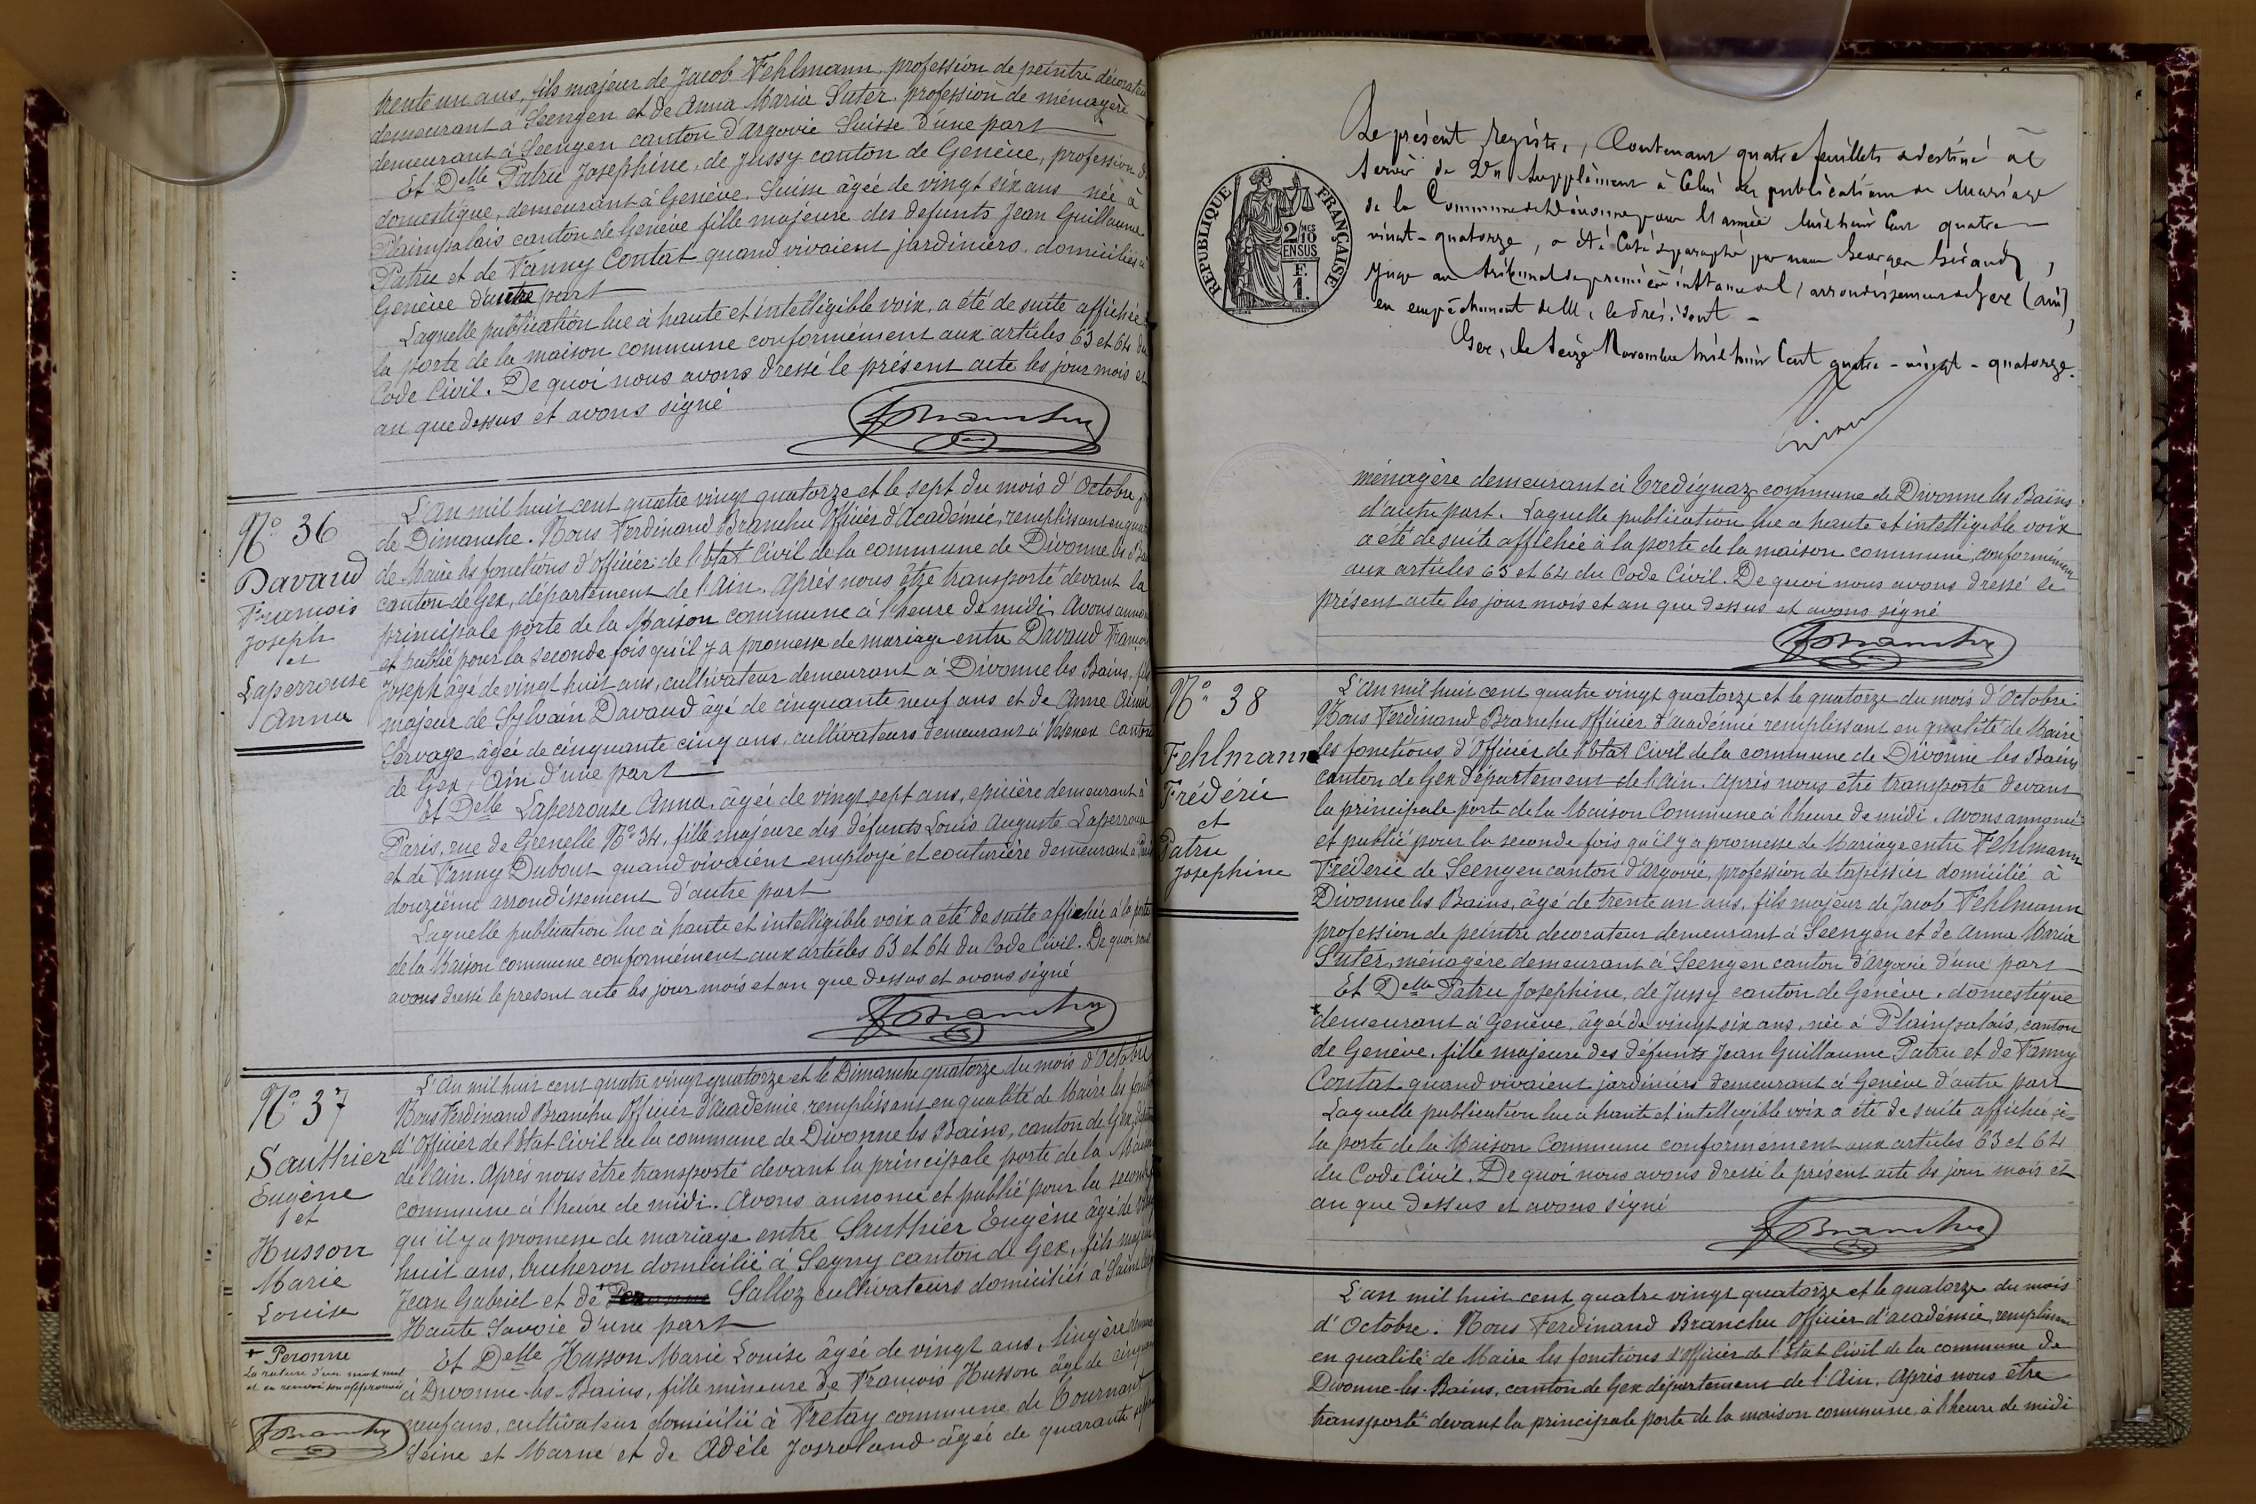 trente un ans, fils majeur de Jacob Fehlmann, profession de peintre décorateur
demeurant à Seengen et de Anna Maria Suter, profession de ménagère
demeurant à Seengen canton d'Argovie Suisse d'une part
Et Delle Patru Josephine, de Jussy canton de Genève, profession de
domestique, demeurant à Genève, Suisse âgée de vingt six ans née à
Plainpalais canton de Genève fille majeure des defunts Jean Guillaume
Patru et de Fanny Contat quand vivaient jardiniers, domiciliés à
Genève d'autre part
Laquelle publication lue à haute et intelligible voix, a été de suite affichée à
la porte de la maison commune conformément aux articles 63 et 64 du
Code Civil. De quoi nous avons dressé le présent acte les jour mois et
an que dessus et avons signé
FBranchu
No 36
Davaud
François
Joseph
et
Laperrouse
Anna
L'An mil huit cent quatre vingt quatorze et le sept du mois d'Octobre, jour
de Dimanche. Nous Ferdinand Branchu Officier d'Académie, remplissant en qualité
de Maire les fonctions d'officier de l'état Civil de la commune de Divonne les Bains
canton de Gex, département de l'Ain. Après nous être transporté devant la
principale porte de la Maison commune à l'heure de midi. Avons annoncé
et publié pour la seconde fois qu'il y a promesse de mariage entre Davaud François
Joseph âgé de vingt huit ans, cultivateur demeurant à Divonne les Bains, fils
majeur de Sylvain Davaud âgé de cinquante neuf ans et de Anne Aimée
Servage âgée de cinquante cinq ans, cultivateurs demeurant à Vesenex canton
de Gex, Ain d'une part
Et Delle Laperrouse Anna, âgée de vingt sept ans, epicière demeurant à
Paris, rue de Grenelle No 34, fille majeure des défunts Louis Auguste Laperrouse
et de Fanny Dubout quand vivaient employé et couturière demeurant à Paris
douzième arrondissement d'autre part
Laquelle publication lue à haute et intelligible voix a été de suite affichée à la porte
de la Maison commune conformément aux articles 63 et 64 du Code Civil. De quoi nous
avons dressé le present acte les jour mois et an que dessus et avons signé
FBranchu
No 37
Sauthier
Eugène
et
Husson
Marie
Louise
+ Peronne
La rature d'un mot nul
et en renvoi son approuvés
FBranchu
L'An mil huit cent quatre vingt quatorze et le Dimanche quatorze du mois d'Octobre
Nous Ferdinand Branchu Officier d'Académie remplissant en qualité de Maire les fonctions
d'Officier de l'Etat Civil de la commune de Divonne les Bains, canton de Gex,
de l'Ain. Après nous être transporté devant la principale porte de la Maison
commune à l'heure de midi. Avons annoncé et publié pour la seconde
qu'il y a promesse de mariage entre Sauthier Eugène âgé de vingt
huit ans, bucheron domicilié à Segny canton de Gex, fils majeur
Jean Gabriel et de + Salloz cultivateurs domiciliés à Saint
Haute Savoie d'une part
Et Delle Husson Marie Louise âgée de vingt ans, lingère
à Divonne-les-Bains, fille mineure de François Husson âgé de cinquante
neuf ans, cultivateur domicilié à Fretay commune de Tournant
Seine et Marne et de Adèle âgée de quarante
Le présent registre, Contenant quatre feuillets destiné à
servir de Supplément à Celui des publications de Mariage
de la Commune de Divonne pour l'année mil huit Cent quatre
vingt-quatorze, a été Coté & paraphé par nous Georges,
Juge au tribunal de première instance de l'arrondissement de Gex (ain),
en empêchement de M. le Président -
Gex, le seize Novembre mil huit Cent quatre-vingt-quatorze.
REPUBLIQUE FRANÇAISE
2/10
EN SUS
F.
1.
ménagère demeurant à Credignaz commune de Divonne les Bains
d'autre part. Laquelle publication lue à haute et intelligible voix
a été de suite affichée à la porte de la maison commune, conformément
aux articles 63 et 64 du Code Civil. De quoi nous avons dressé le
présent acte les jour mois et an que dessus et avons signé
FBranchu
No 38
Fehlmann
Frédéric
et
Patru
Josephine
L'An mil huit cent quatre vingt quatorze et le quatorze du mois d'Octobre
Nous Ferdinand Branchu Officier d'académie remplissant en qualité de Maire
les fonctions d'Officier de l'état Civil de la commune de Divonne les Bains
canton de Gex département de l'Ain. Après nous être transporté devant
la principale porte de la Maison Commune à l'heure de midi. Avons annoncé
et publié pour la seconde fois qu'il y a promesse de Mariage entre Fehlmann
Fréderic de Seengen canton d'Argovie, profession de tapissier domicilié à
Divonne les Bains, âgé de trente un ans, fils majeur de Jacob Fehlmann
profession de peintre decorateur demeurant à Seengen et de Anna Maria
Suter, ménagère demeurant à Seengen canton d'Argovie d'une part
Et Delle Patru Josephine, de Jussy canton de Genève, domestique
demeurant à Genève, âgée de vingt six ans, née à Plainpalais, canton
de Genève, fille majeure des défunts Jean Guillaume Patru et de Fanny
Contat quand vivaient jardiniers demeurant à Genève d'autre part
Laquelle publication lue à haute et intelligible voix a été de suite affichée à
la porte de la Maison Commune conformement aux articles 63 et 64
du Code Civil. De quoi nous avons dressé le présent acte les jour mois et
an que dessus et avons signé
FBranchu
L'an mil huit cent quatre vingt quatorze et le quatorze du mois
d'Octobre. Nous Ferdinand Branchu Officier d'académie, remplissant
en qualité de Maire les fonctions d'Officier de l'Etat Civil de la commune de
Divonne-les-Bains, canton de Gex département de l'Ain. Après nous être
transporté devant la principale porte de la maison commune à l'heure de midi